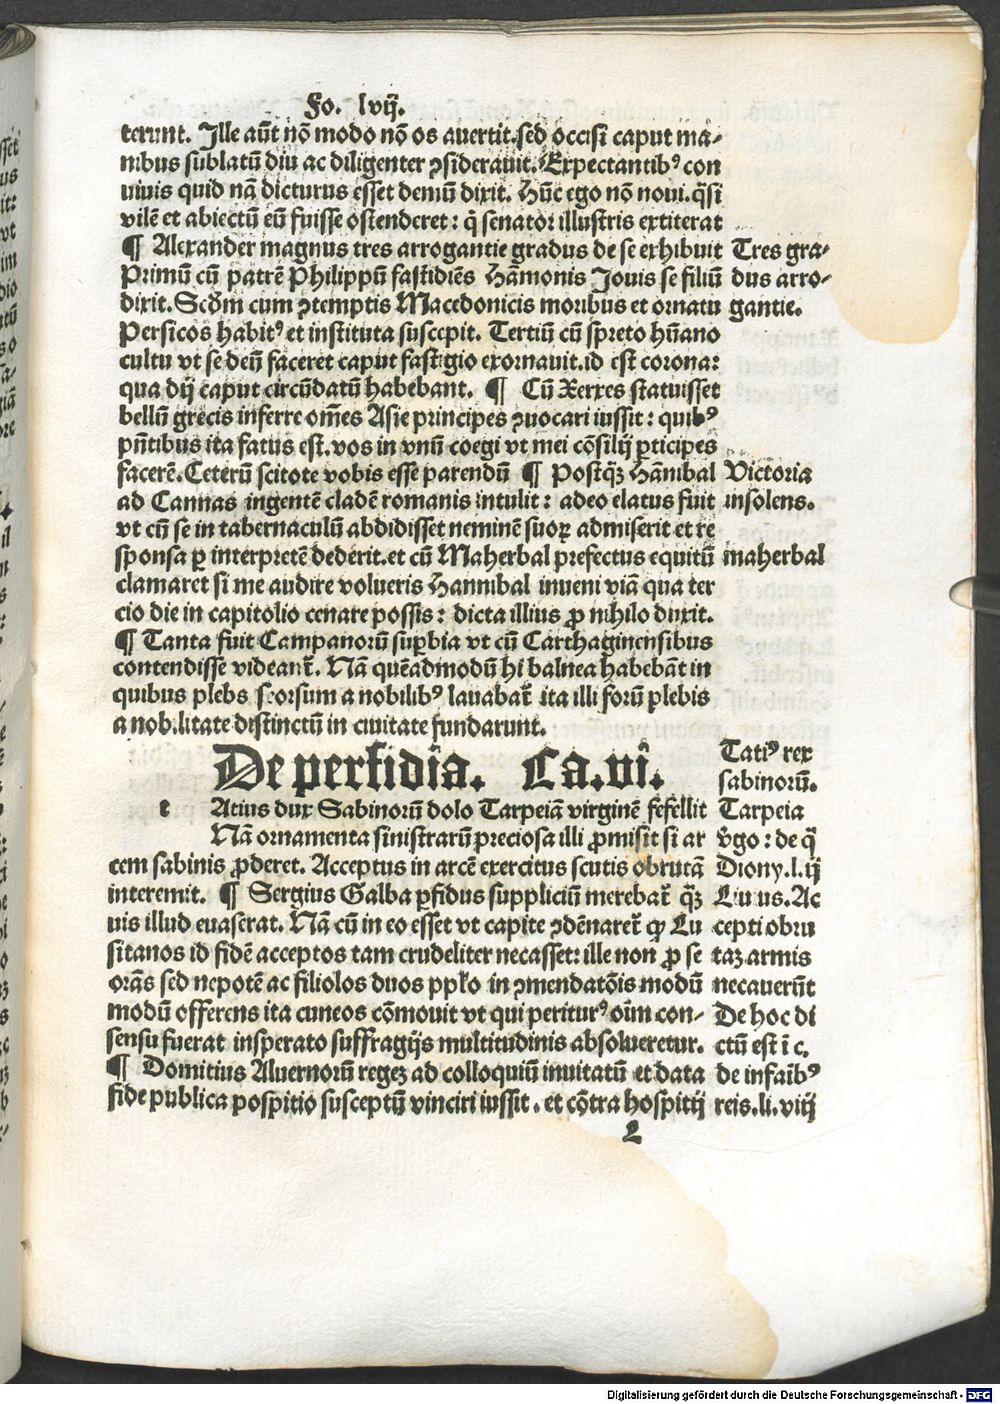 Fo. lvij.
terunt. Ille aūt nō modo nō os auertit.sed occisi caput ma-
nibus sublatū diu ac diligenter ꝯsiderauit. Expectantibꝰ con
uiuis quid nā dicturus esset demū dixit. Hūc ego nō noui.q̄si
vilē et abiectū eū fuisse ostenderet: q̄ senator illustris extiterat
¶ Alexander magnus tres arrogantie gradus de se exhibuit
Primū cū patrē Philippū fastidiēs Hāmonis Jouis se filiū
dixit. Scd̄m cum ꝯtemptis Macedonicis moribus et ornatu
Persicos habitꝰ et instituta suscepit. Tertiū cū spreto hūano
cultu vt se deū faceret caput fastigio exornauit.id est corona:
qua dij caput circūdatū habebant. ¶ Cū Xerxes statuisset
bellū grecis inferre om̄es Asie principes ꝯuocari iussit: quibꝰ
pn̄tibus ita fatus est.vos in vnū coegi vt mei cōsilij ꝑticipes
facerē.Ceterū scitote vobis esse parendū ¶ Postqꝫ Hānibal
ad Cannas ingentē cladē romanis intulit: adeo elatus fuit
vt cū se in tabernaculū abdidisset neminē suoꝝ admiserit et re
sponsa ꝑ interpretē dederit.et cū Maherbal prefectus equitū
clamaret si me audire volueris Hannibal inueni viā qua ter
cio die in capitolio cenare possis: dicta illius ꝓ nihilo duxit.
¶ Tanta fuit Campanorū suꝑbia vt cū Carthaginensibus
contendisse videant̄. Nā quēadmodū hi balnea habebāt in
quibus plebs seorsum a nobilibꝰ lauabat̄ ita illi forū plebis
a nobilitate distinctū in ciuitate fundarunt.
Tres gra-
dus arro-
gantie.
Victoria
insolens.
maherbal
De perfidia. Ca.vi.
t Atius dux Sabinorū dolo Tarpeiā virginē fefellit
Nā ornamenta sinistrarū preciosa illi ꝓmisit si ar
cem sabinis ꝓderet. Acceptus in arcē exercitus scutis obrutā
interemit. ¶ Sergius Galba ꝑfidus suppliciū merebat̄ qꝫ
uis illud euaserat. Nā cū in eo esset vt capite ꝯdēnaret̄ ꝙ Lu
sitanos id fidē acceptos tam crudeliter necasset: ille non ꝓ se
orās sed nepotē ac filiolos duos ppło in ꝯmendatōis modū
modū offerens ita cuneos cōmouit vt qui periturꝰ oīm con-
sensu fuerat insperato suffragijs multitudinis absolueretur.
¶ Domitius Aluernorū regeꝫ ad colloquiū inuitatū et data
fide publica pospitio susceptū vinciri iussit. et cōtra hospitij
Tatiꝰ rex
sabinorū.
Tarpeia
v̄go: de q̄
Diony.l.ij
Liuius.Ac
cepti obru
taꝫ armis
necauerūt
De hoc di
ctū est ī c.
de infaībꝰ
reis.li.viij
L
Digitalisierung gefördert durch die Deutsche Forschungsgemeinschaft - DFG